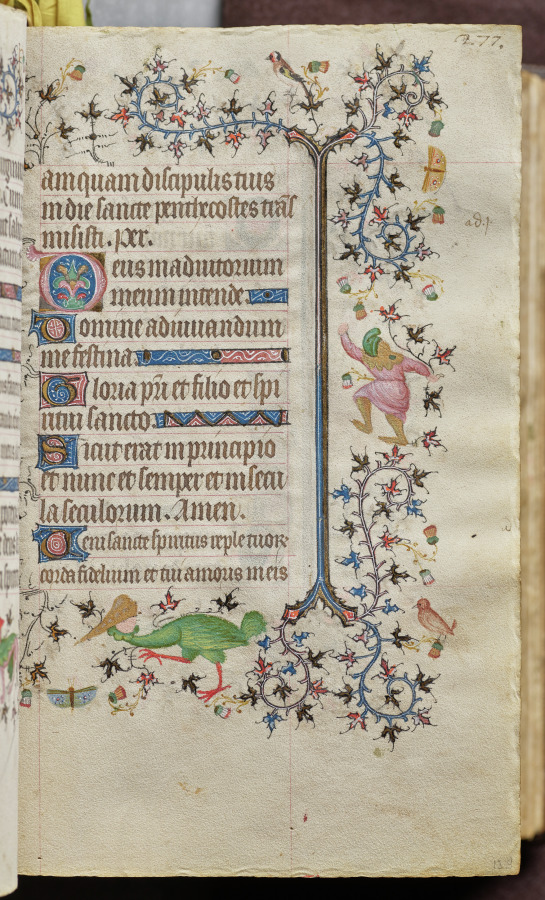 n. 77.
amquam discipulis tuis
in die sancte penthecostes trās
misisti. per.
Deus in adiutorium
meum intende
Domine ad iuuandum
me festina
Gloria pri et filio et spi
ritui sancto
Sicut erat in principio
et nunc et semper et in secu
la seculorum. Amen.
Ueni sancte spiritus reple tuor
corda fidelium et tui amoris in eis